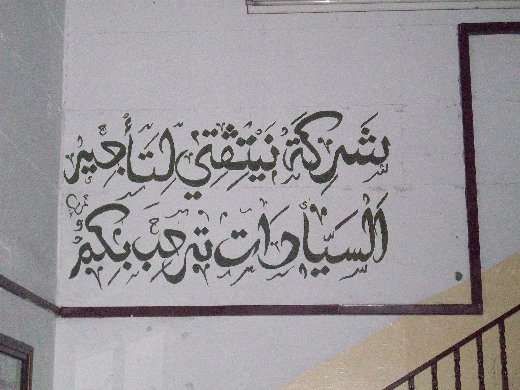 شَرِكَة لِتَأجير
السيارات ترحب بكم